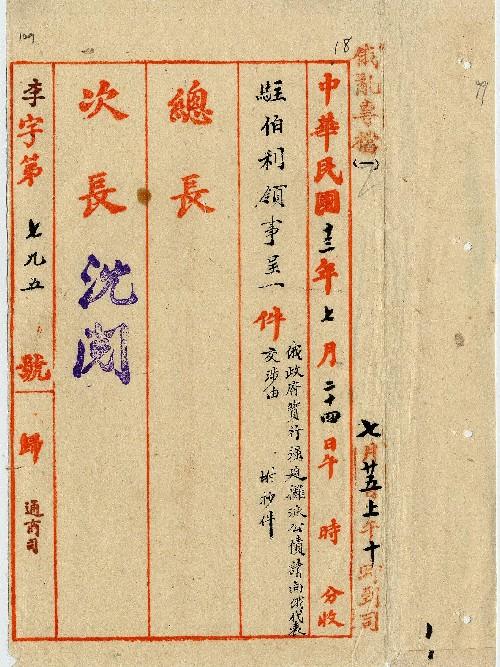 俄亂專檔(一)
18
七月廿五日上午十時到司
中華民國十三年七月二十四日午 時 分收
駐伯利領事呈一件
俄政府實行強迫攤派公債請向俄代表
交涉由
附抄件
總長
次長 沈閱
李字第七九五號 歸通商司